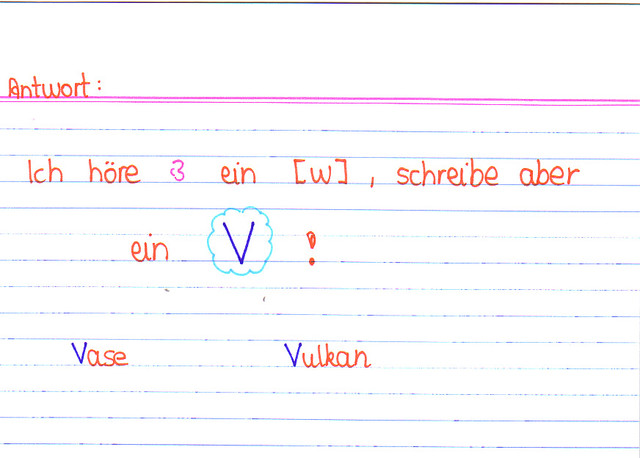 Antwort:
Ich höre ein [W], schreibe aber
ein V !
Vase Vulkan